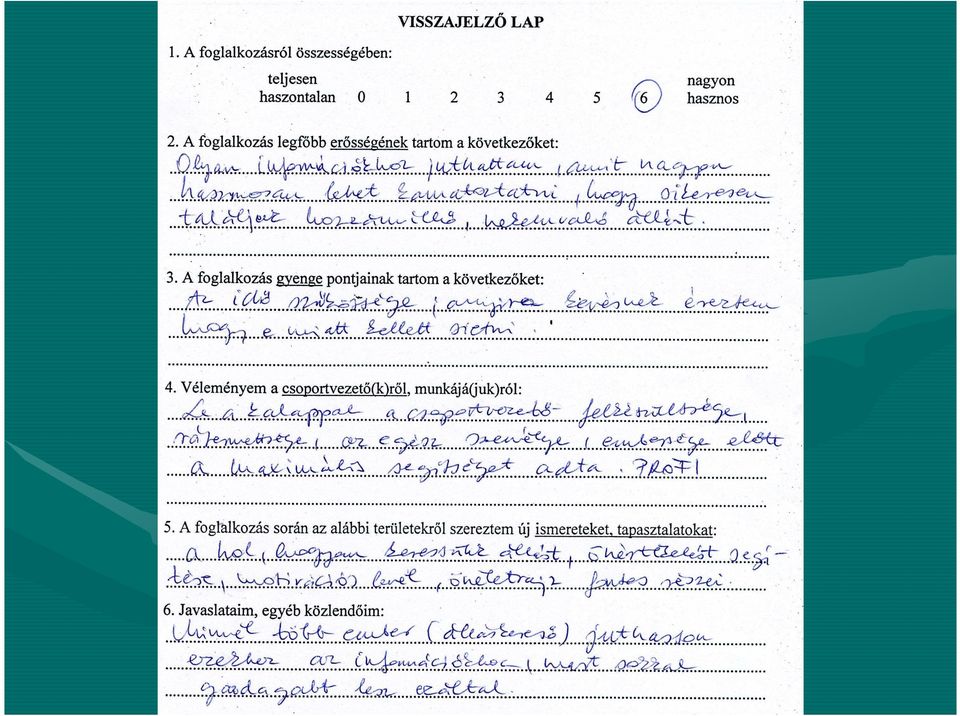 VISSZAJELZŐ LAP
1. A foglalkozásról összességében:
teljesen nagyon
haszontalan 0 1 2 3 4 5 6 hasznos
2. A foglalkozás legfőbb erősségének tartom a következőket:
Olyan információkhoz juthattam, amit nagyon
hasznosan lehet kamatoztatni, hogy sikeresen
találjak hozzámillő, nekemvaló állást.
3. A foglalkozás gyenge pontjainak tartom a következőket:
Az idő szűkössége, annyira kevésnek éreztem
hogy e miatt kellett sietni.
4. Véleményem a csoportvezető(k)ről, munkájá(juk)ról:
Le a kalappal a csoportvezető felkészültsége,
rátermettsége, az egész személye, embersége előtt
a maximális segítséget adta. PROFI
5. A foglalkozás során az alábbi területekről szereztem új ismereteket, tapasztalatokat:
a hol, hogyan keressünk állást, önértékelést segí-
tése, motivációs levél, önéletrajz fontos részei.
6. Javaslataim, egyéb közlendőim:
Minnél több ember (álláskereső) juthasson
ezekhez az információkhoz, mert sokkal
gazdagabb lesz ezáltal.